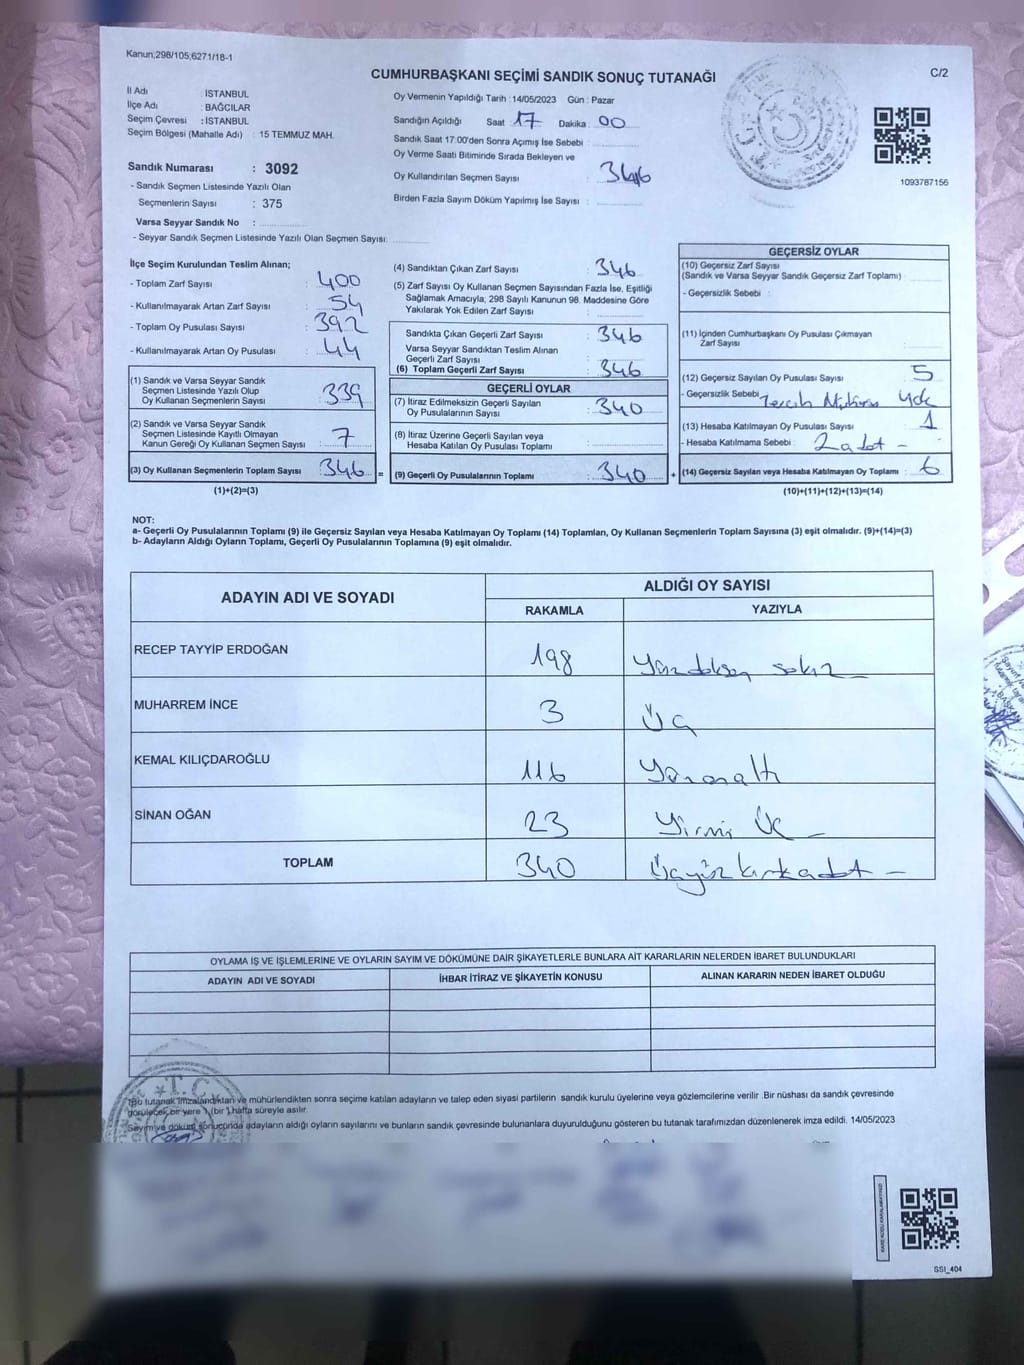 Kanun,298/105,6271/18-1
C/2
CUMHURBAŞKANI SEÇİMİ SANDIK SONUÇ TUTANAĞI
İl Adı : İSTANBUL
İlçe Adı : BAĞCILAR
Seçim Çevresi : İSTANBUL
Seçim Bölgesi (Mahalle Adı) : 15 TEMMUZ MAH.
Sandık Numarası : 3092
- Sandık Seçmen Listesinde Yazılı Olan
Seçmenlerin Sayısı : 375
Varsa Seyyar Sandık No :
- Seyyar Sandık Seçmen Listesinde Yazılı Olan Seçmen Sayısı:
Oy Vermenin Yapıldığı Tarih :14/05/2023 Gün : Pazar
Sandığın Açıldığı Saat 17 Dakika 00
Sandık Saat 17:00'den Sonra Açımış İse Sebebi :
Oy Verme Saati Bitiminde Sırada Bekleyen ve
Oy Kullandırılan Seçmen Sayısı : 346
Birden Fazla Sayım Döküm Yapılmış İse Sayısı :
1093787156
İlçe Seçim Kurulundan Teslim Alınan;
- Toplam Zarf Sayısı : 400
- Kullanılmayarak Artan Zarf Sayısı : 54
- Toplam Oy Pusulası Sayısı : 392
- Kullanılmayarak Artan Oy Pusulası : 44
(1) Sandık ve Varsa Seyyar Sandık
Seçmen Listesinde Yazılı Olup
Oy Kullanan Seçmenlerin Sayısı : 339
(2) Sandık ve Varsa Seyyar Sandık
Seçmen Listesinde Kayıtlı Olmayan
Kanun Gereği Oy Kullanan Seçmen Sayısı : 7
(3) Oy Kullanan Seçmenlerin Toplam Sayısı : 346 =
(1)+(2)=(3)
(4) Sandıktan Çıkan Zarf Sayısı : 346
(5) Zarf Sayısı Oy Kullanan Seçmen Sayısından Fazla İse, Eşitliği
Sağlamak Amacıyla; 298 Sayılı Kanunun 98. Maddesine Göre
Yakılarak Yok Edilen Zarf Sayısı :
Sandıkta Çıkan Geçerli Zarf Sayısı : 346
Varsa Seyyar Sandıktan Teslim Alınan
Geçerli Zarf Sayısı :
(6) Toplam Geçerli Zarf Sayısı : 346
GEÇERLİ OYLAR
(7) İtiraz Edilmeksizin Geçerli Sayılan
Oy Pusulalarının Sayısı : 340
(8) İtiraz Üzerine Geçerli Sayılan veya
Hesaba Katılan Oy Pusulası Toplamı :
(9) Geçerli Oy Pusulalarının Toplamı : 340 +
GEÇERSİZ OYLAR
(10) Geçersiz Zarf Sayısı
(Sandık ve Varsa Seyyar Sandık Geçersiz Zarf Toplamı) :
- Geçersizlik Sebebi :
(11) İçinden Cumhurbaşkanı Oy Pusulası Çıkmayan
Zarf Sayısı :
(12) Geçersiz Sayılan Oy Pusulası Sayısı : 5
- Geçersizlik Sebebi : Tercih Mührü Yok
(13) Hesaba Katılmayan Oy Pusulası Sayısı : 1
- Hesaba Katılmama Sebebi : 2 adet -
(14) Geçersiz Sayılan veya Hesaba Katılmayan Oy Toplamı : 6
(10)+(11)+(12)+(13)=(14)
NOT:
a- Geçerli Oy Pusulalarının Toplamı (9) ile Geçersiz Sayılan veya Hesaba Katılmayan Oy Toplamı (14) Toplamları, Oy Kullanan Seçmenlerin Toplam Sayısına (3) eşit olmalıdır. (9)+(14)=(3)
b- Adayların Aldığı Oyların Toplamı, Geçerli Oy Pusulalarının Toplamına (9) eşit olmalıdır.
ADAYIN ADI VE SOYADI
ALDIĞI OY SAYISI
RAKAMLA YAZIYLA
RECEP TAYYİP ERDOĞAN 198 Yüzdoksan sekiz
MUHARREM İNCE 3 Üç
KEMAL KILIÇDAROĞLU 116 Yüzonaltı
SİNAN OĞAN 23 Yirmi Üç
TOPLAM 340 Üçyüzkırkadet -
OYLAMA İŞ VE İŞLEMLERİNE VE OYLARIN SAYIM VE DÖKÜMÜNE DAİR ŞİKAYETLERLE BUNLARA AİT KARARLARIN NELERDEN İBARET BULUNDUKLARI
ADAYIN ADI VE SOYADI İHBAR İTİRAZ VE ŞİKAYETİN KONUSU ALINAN KARARIN NEDEN İBARET OLDUĞU
T.C.
İşbu tutanak imzalandıktan ve mühürlendikten sonra seçime katılan adayların ve talep eden siyasi partilerin sandık kurulu üyelerine veya gözlemcilerine verilir .Bir nüshası da sandık çevresinde
görülecek bir yere 1 (bir ) hafta süreyle asılır.
Sayım ve döküm sonucunda adayların aldığı oyların sayılarını ve bunların sandık çevresinde bulunanlara duyurulduğunu gösteren bu tutanak tarafımızdan düzenlenerek imza edildi. 14/05/2023
SSI_404